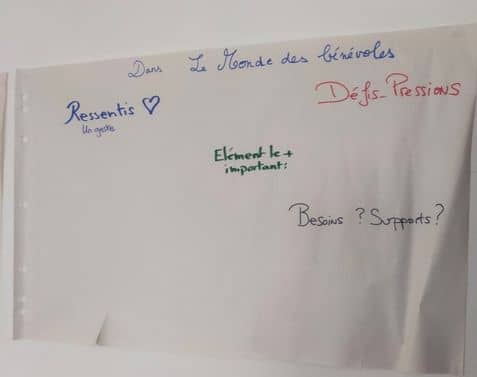 Dans Le Monde des bénévoles
Défis-Pressions
Ressentis ♡
Un geste
Elément le +
important:
Besoins ? Supports ?